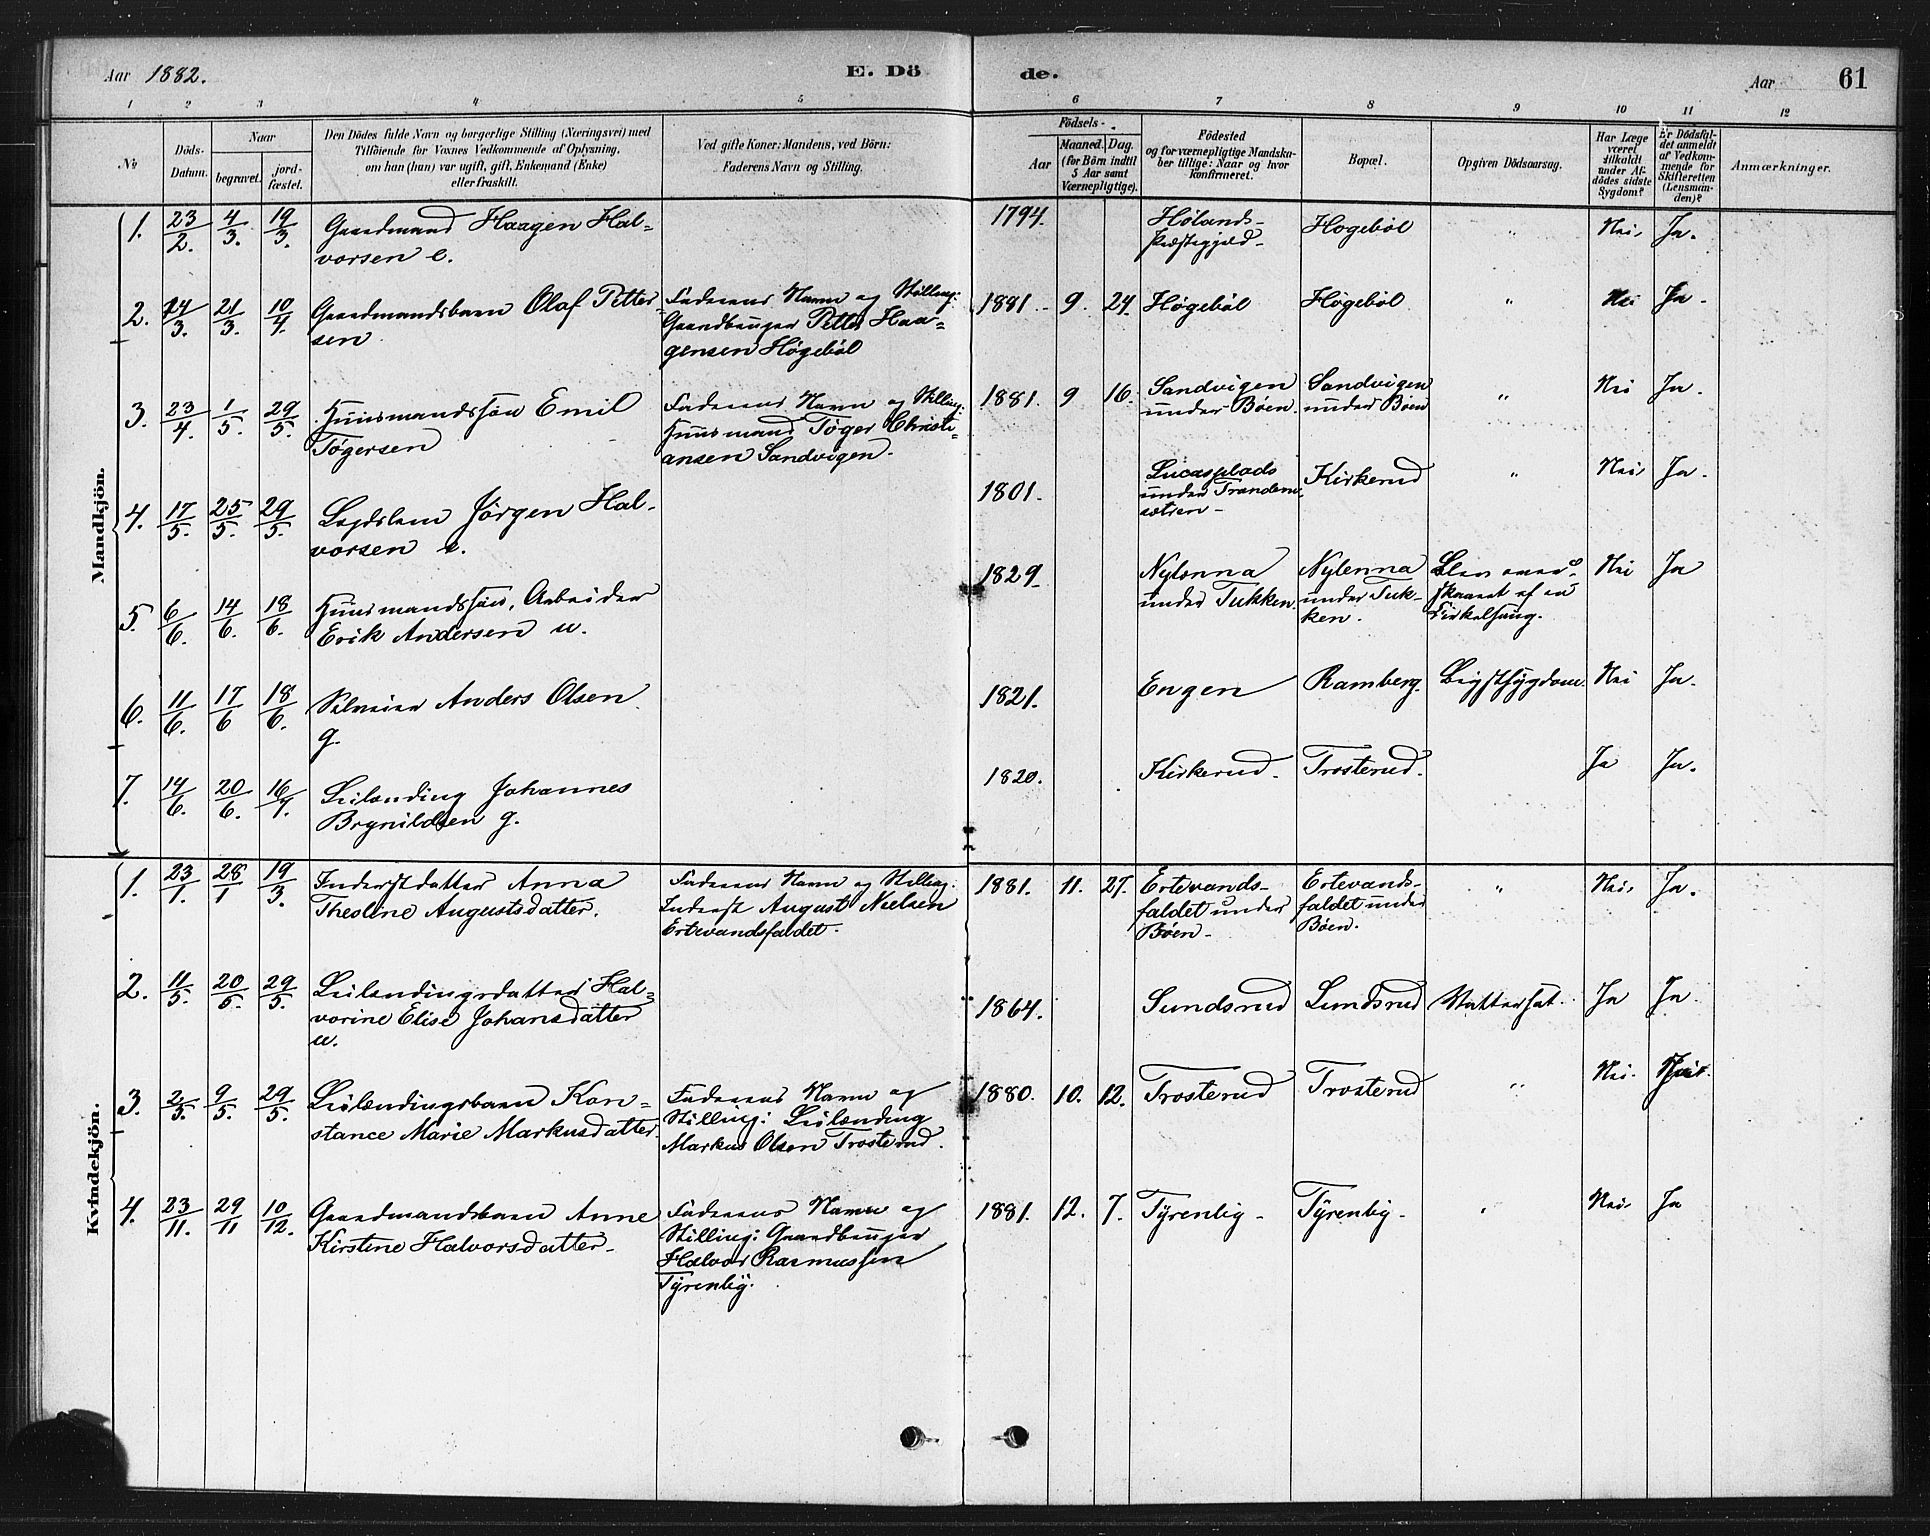 Aar 1882. E. Dö de. Aar 61
1 2 3 4 5 6 7 8 9 10 11 12
No
Döds-
Datum.
Naar
begravet.
jord-
fæstet.
Den Dödes fulde Navn og borgerlige Stilling (Næringsvei) med
Tilföiende for Voxnes Vedkommende af Oplysning,
om han (hun) var ugift, gift, Enkemand (Enke)
eller fraskilt.
Ved gifte Koner: Mandens, ved Börn:
Faderens Navn og Stilling.
Födsels-
Aar
Maaned. Dag.
(for Börn indtil
5 Aar samt
Værnepligtige).
Födested
og for værnepligtige Mandska-
ber tillige: Naar og hvor
konfirmeret.
Bopæl.
Opgiven Dödsaarsag.
Har Læge
været
tilkaldt
under Af-
dödes sidste
Sygdom?
Er Dödsfal-
det anmeldt
af Vedkom-
mende for
Skifteretten
(Lensman-
den)?
Anmærkninger.
Mandkjön.
1. 23/2. 4/3. 19/3. Gaardmand Haagen Hal-
vorsen e.
1794. Hølands-
Præstegjæld- Hogebøl " Nei. Ja.
2. 14/3. 21/3. 10/4 Gaardmandsbarn Olaf Petter-
sen
Faderens Navn og Stilling:
Gaardbruger Petter Haa-
gensen Høgebøl
1881 - 9. 24. Høgebøl Høgebøl " Nei Ja -
3. 23/4. 1/5. 29/5. Huusmandssøn Emil
Tøgersen
Faderens Navn og Stilling:
Huusmand Tøger Christi-
ansen Sandvigen -
1881. 9 16. Sandvigen
under Bøen. Sandvigen
under Bøen " Nei Ja.
4. 17/5. 25/5. 29/5. Lægdslem Jörgen Hal-
vorsen e.
1801. Lucasplads
under
Kirkerud " Nei Ja.
5. 6/6. 14/6. 18/6. Huusmandssøn, Arbeider
Erik Andersen u.
1829 Nylænna
under Tukken. Nylenna
under Tuk-
ken. Blev over-
skaaret af en
Cirkelsaug. Nei Ja
6. 11/6. 17/6 18/6. Selveier Anders Olsen
g.
1821. Engen Ramberg. Nei Ja.
7. 14/6. 20/6. 16/9. Leilænding Johannes
Brynildsen g.
1820. Kirkerud. Trosterud. Ja Ja.
Kvindekjön.
1. 23/1. 28/1 19/3. Inderstdatter Anna
Theoline Augustsdatter.
Faderens Navn og Stilling:
Inderst August Nielsen
Ertevandsfaldet.
1881. 11. 27. Ertevands-
faldet under
Bøen - Ertevands-
faldet under
Bøen. " Nei. Ja.
2. 11/5. 20/5. 29/5. Leilændingsdatter Hal-
vorine Elise Johansdatter
u.
1864. Sundsrud Lundsrud Vattersot. Ja Ja.
3. 2/5. 9/5. 29/5. Leilændingsbarn Kon-
stance Marie Markusdatter.
Faderens Navn og
Stilling: Leilænding
Markus Olsen Trosterud.
1880. 10. 12. Trosterud Trosterud " Nei.
4. 23/11. 29/11 10/12. Gaardmandsbarn Anne
Kirstine Halvorsdatter -
Faderens Navn og
Stilling: Gaardbruger
Halvor Rasmussen
Tyrenby.
1881. 12. 7. Tyrenby - Tyrenby - " Nei. Ja